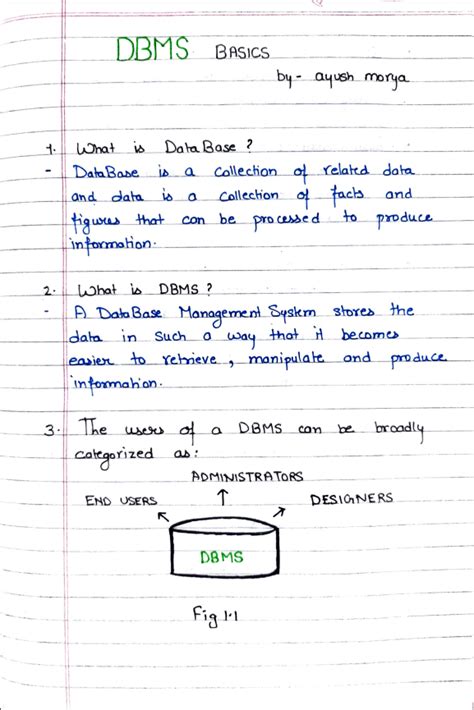 DBMS BASICS
by- ayush morya
1. What is DataBase ?
- DataBase is a collection of related data
and data is a collection of facts and
figures that can be processed to produce
information.
2. What is DBMS ?
- A DataBase Management System stores the
data in such a way that it becomes
easier to retrieve , manipulate and produce
information.
3. The users of a DBMS can be broadly
categorized as:
ADMINISTRATORS
END USERS DESIGNERS
DBMS
Fig 1.1